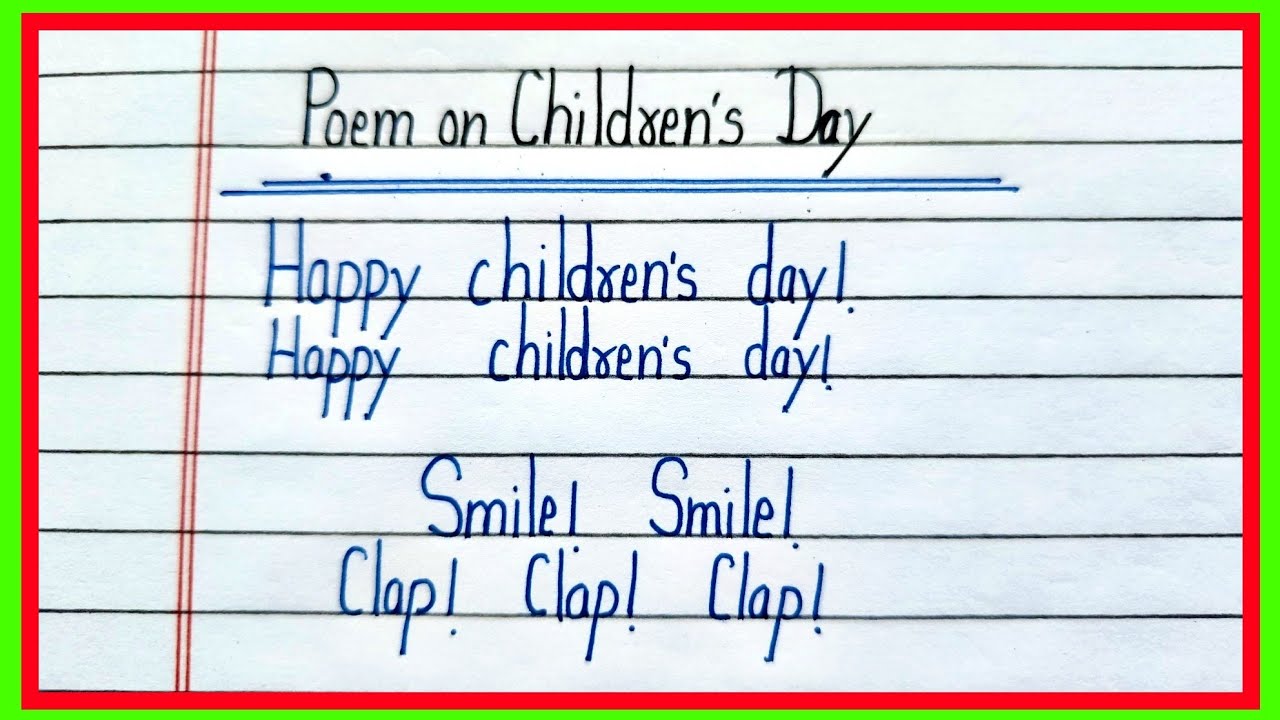 Poem on Children's Day
Happy children's day!
Happy children's day!
Smile! Smile!
Clap! Clap! Clap!